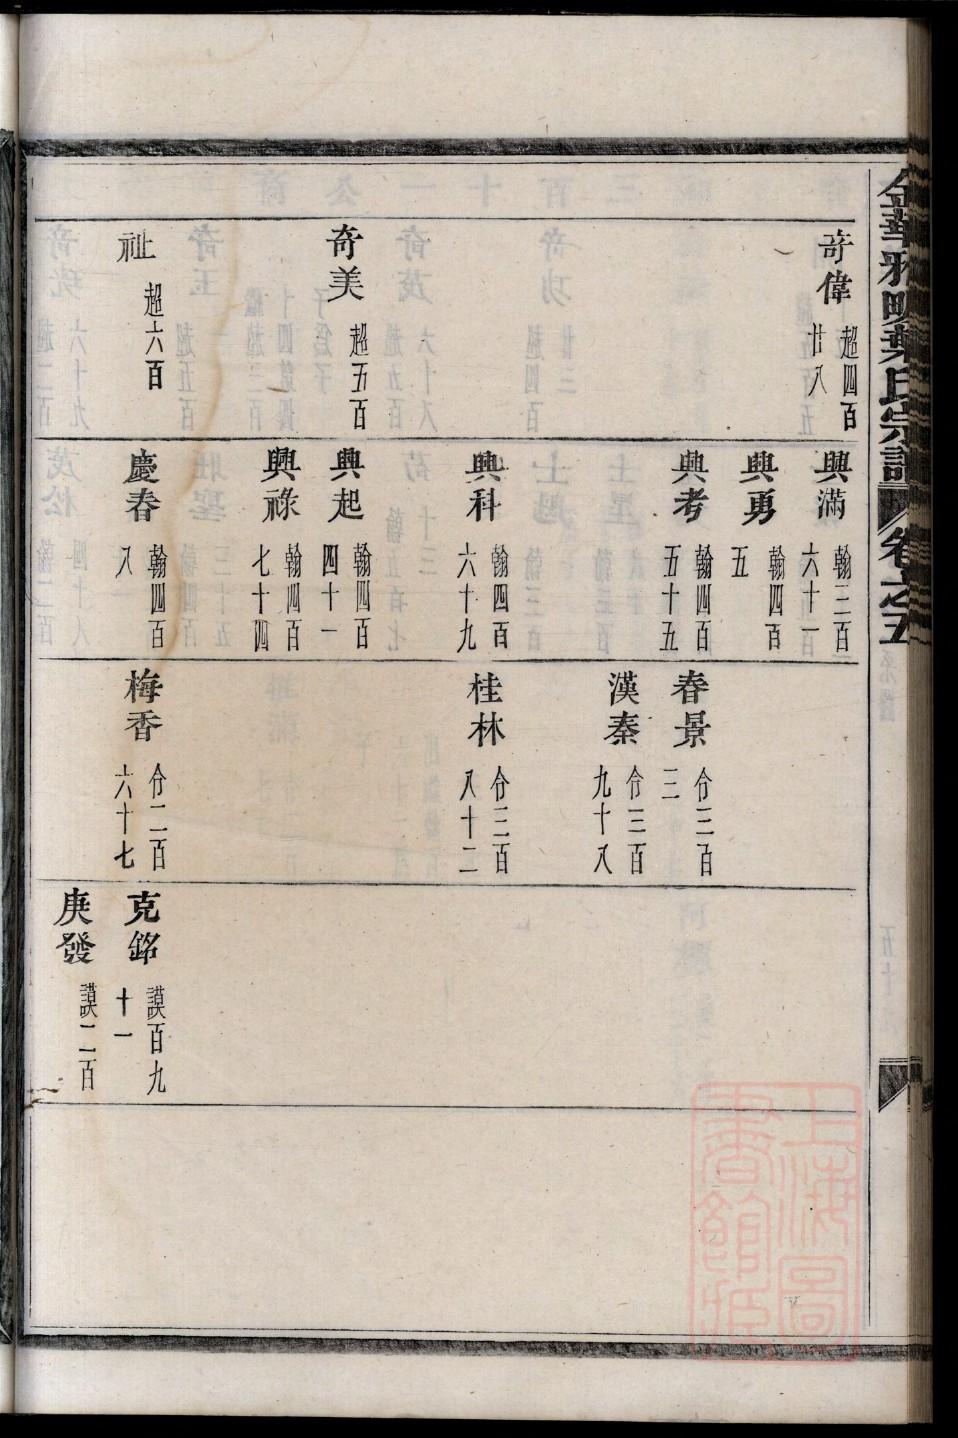 金華雅畈葉氏宗譜 卷之五
奇偉 超四百廿八
奇美 超五百
祉 超六百
興滿 翰三百六十一
興勇 翰四百五
興考 翰四百五十五
興科 翰四百六十九
興起 翰四百四十一
興祿 翰四百七十四
慶春 翰四百八
春景 分三百三
漢秦 分三百九十八
桂林 分三百八十二
梅香 分二百六十七
克銘 謨百九十一
庚發 謨二百
上海圖書館藏